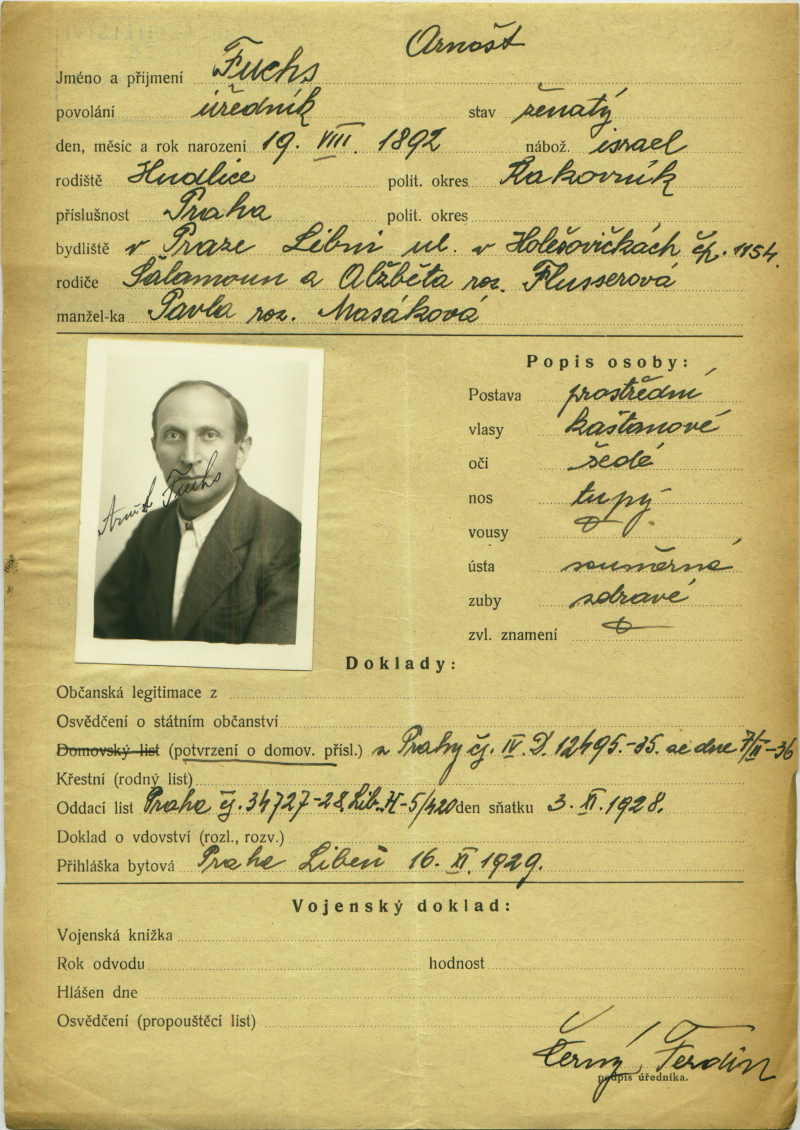 Arnošt
Jméno a příjmení Fuchs
povolání úředník stav ženatý
den, měsíc a rok narození 19. VIII. 1892 nábož. israel
rodiště Hudlice polit. okres Rakovník
příslušnost Praha polit. okres
bydliště v Praze Libni ul. v Holešovičkách čp. 1154.
rodiče Šalamoun a Alžběta roz. Flusserová
manžel-ka Pavla roz. Masáková
Popis osoby:
Postava prostřední
vlasy kaštanové
oči šedé
nos tupý
vousy
ústa souměrná
zuby zdravé
zvl. znamení
Arnošt Fuchs
Doklady:
Občanská legitimace z
Osvědčení o státním občanství
Domovský list (potvrzení o domov. přísl.) z Prahy čj. IV. D. 12495.-35. ze dne 7/II-36
Křestní (rodný list)
Oddací list Praha čj. 34727-28 Lib. 5/420 den sňatku 3. XI. 1928.
Doklad o vdovství (rozl., rozv.)
Přihláška bytová Praha Libeň 16. XI. 1929.
Vojenský doklad:
Vojenská knížka
Rok odvodu hodnost
Hlášen dne
Osvědčení (propouštěcí list)
Černý Ferdin
podpis úředníka.